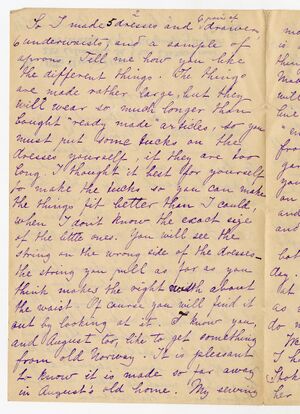 So I made 5 dresses and 6 pair of drawers,
6 underwaists, and a sample of
aprons. Tell me how you like
the different things. The things
are made rather large, but they
will wear so much longer than
bought "ready made" articles, so you
must put some tucks on the
dresses yourself, if they are too
long. I thought it best for yourself
to make the tucks so you can make
the things fit better than I could,
when I don't know the exact size
of the little ones. You will see the
string on the wrong side of the dresses –
the string you pull as far as you
think makes the right width about
the waist. Of course you will find it
out by looking at it. I know you,
and August too, like to get something
from old Norway. It is pleasant
to know it is made so far away
in August's old home. My sewing